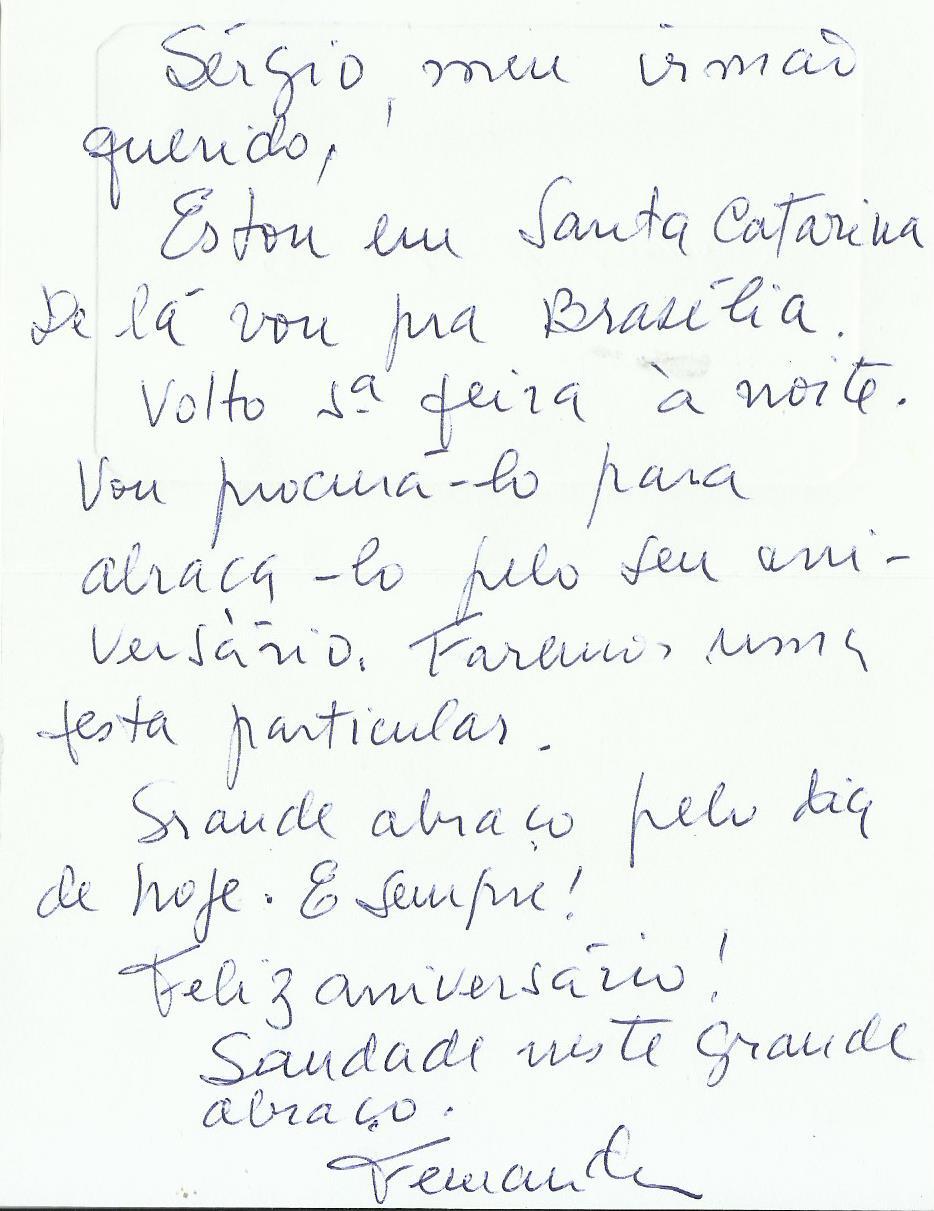 Sérgio, meu irmão
querido,
Estou em Santa Catarina
De lá vou pra Brasília.
Volto 5ª feira à noite.
Vou procurá-lo para
abraçá-lo pelo seu ani-
versário. Faremos uma
festa particular.
Grande abraço pelo dia
de hoje. E sempre!
Feliz aniversário!
Saudade neste grande
abraço.
Fernanda